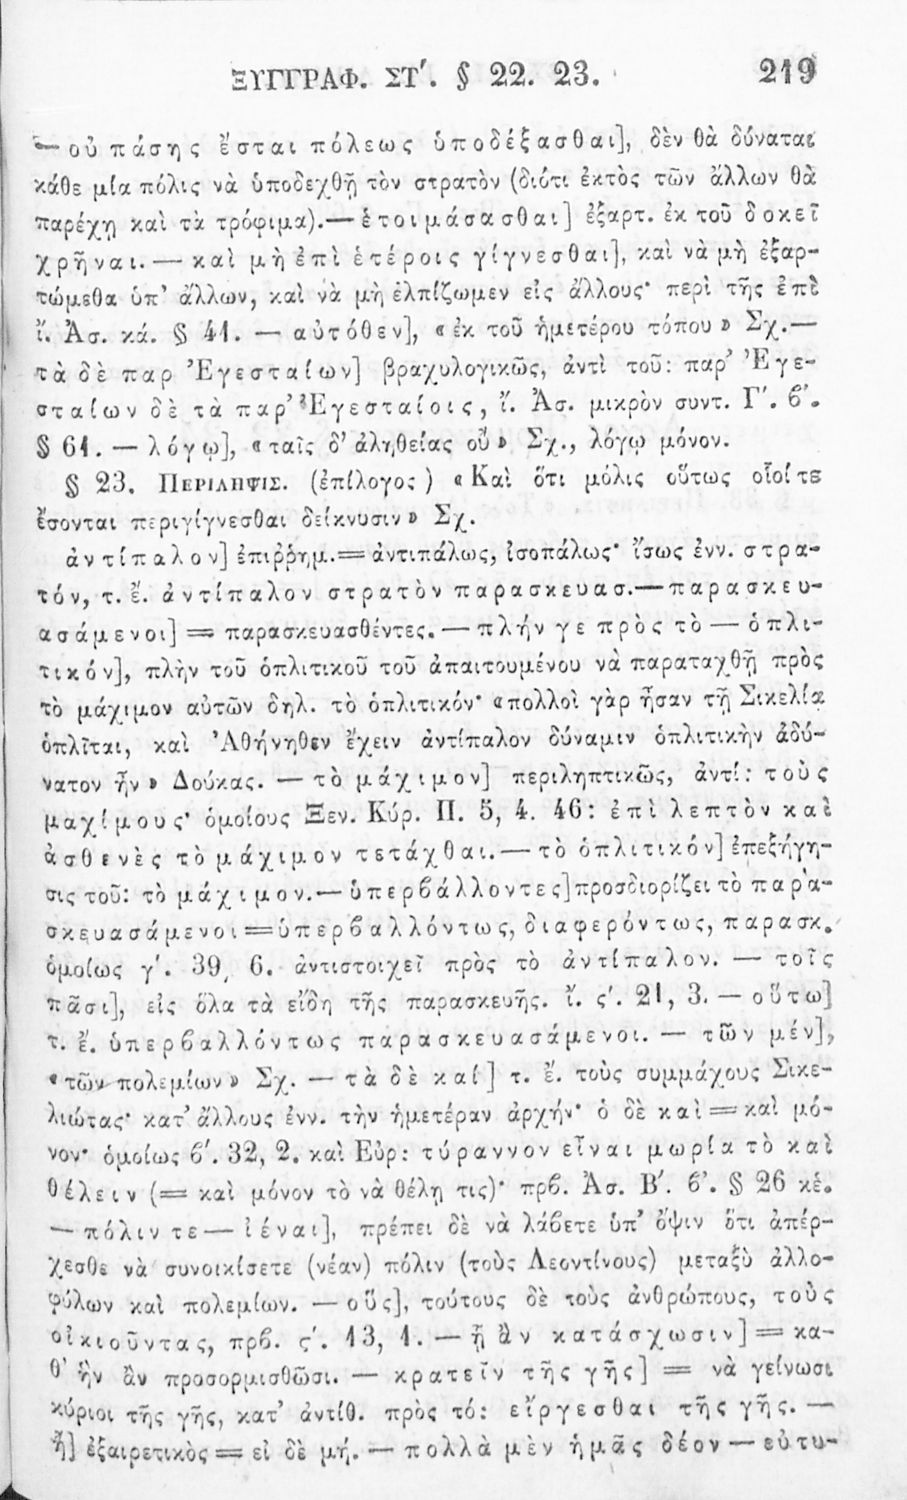 ΞΥΓΓΡΑΦ. ΣΤ΄. § 22. 23. 219
— οὐ πάσης ἔσται πόλεως ὑποδέξασθαι], δὲν θὰ δύναται
κάθε μία πόλις νὰ ὑποδεχθῇ τὸν στρατὸν (διότι ἐκτὸς τῶν ἄλλων θὰ
παρέχῃ καὶ τὰ τρόφιμα).— ἑτοιμάσασθαι] ἐξαρτ. ἐκ τοῦ δοκεῖ
χρῆναι. — καὶ μὴ ἐπὶ ἑτέροις γίγνεσθαι], καὶ νὰ μὴ ἐξαρ-
τώμεθα ὑπ’ ἄλλων, καὶ νὰ μὴ ἐλπίζωμεν εἰς ἄλλους· περὶ τῆς ἐπὶ
ἴ. Ἀσ. κά. § 41. — αὐτόθεν], «ἐκ τοῦ ἡμετέρου τόπου» Σχ.—
τὰ δὲ παρ Ἐγεσταίων] βραχυλογικῶς, ἀντὶ τοῦ: παρ’ Ἐγε-
σταίων δὲ τὰ παρ’ Ἐγεσταίοις, ἴ. Ἀσ. μικρὸν συντ. Γ΄. ϐ΄.
§ 61. — λόγῳ], «ταῖς δ’ ἀληθείας οὔ» Σχ., λόγῳ μόνον.
§ 23. ΠΕΡΙΛΗΨΙΣ. (ἐπίλογος) «Καὶ ὅτι μόλις οὕτως οἷοί τε
ἔσονται περιγίγνεσθαι δείκνυσιν» Σχ.
ἀντίπαλον] ἐπιῤῥημ.= ἀντιπάλως, ἰσοπάλως· ἴσως ἐνν. στρα-
τόν, τ. ἔ. ἀντίπαλον στρατὸν παρασκευασ.— παρασκευ-
ασάμενοι] = παρασκευασθέντες. — πλήν γε πρὸς τὸ — ὁπλι-
τικόν], πλὴν τοῦ ὁπλιτικοῦ τοῦ ἀπαιτουμένου νὰ παραταχθῇ πρὸς
τὸ μάχιμον αὐτῶν δηλ. τὸ ὁπλιτικόν· «πολλοὶ γὰρ ἦσαν τῇ Σικελίᾳ
ὁπλῖται, καὶ Ἀθήνηθεν ἔχειν ἀντίπαλον δύναμιν ὁπλιτικὴν ἀδύ-
νατον ἦν» Δούκας. — τὸ μάχιμον] περιληπτικῶς, ἀντί: τοὺς
μαχίμους· ὁμοίους Ξεν. Κύρ. Π. 5, 4. 46: ἐπὶ λεπτὸν καὶ
ἀσθενὲς τὸ μάχιμον τετάχθαι.— τὸ ὁπλιτικόν] ἐπεξήγη-
σις τοῦ: τὸ μάχιμον.— ὑπερϐάλλοντες] προσδιορίζει τὸ παρα-
σκευασάμενοι = ὑπερϐαλλόντως, διαφερόντως, παρασκ.
ὁμοίως γ΄. 39, 6. ἀντιστοιχεῖ πρὸς τὸ ἀντίπαλον. — τοῖς
πᾶσι], εἰς ὅλα τὰ εἴδη τῆς παρασκευῆς. ἴ. ς΄. 21, 3. — οὕτω]
τ. ἔ. ὑπερϐαλλόντως παρασκευασάμενοι. — τῶν μέν],
«τῶν πολεμίων» Σχ. — τὰ δὲ καί] τ. ἔ. τοὺς συμμάχους Σικε-
λιώτας· κατ’ ἄλλους ἐνν. τὴν ἡμετέραν ἀρχήν· ὁ δὲ καὶ = καὶ μό-
νον· ὁμοίως ϐ΄. 32, 2. καὶ Εὐρ: τύραννον εἶναι μωρία τὸ καὶ
θέλειν (= καὶ μόνον τὸ νὰ θέλῃ τις)· πρϐ. Ἀσ. Β΄. ϐ΄. § 26 κἑ.
— πόλιν τε — ἰέναι], πρέπει δὲ νὰ λάϐετε ὑπ’ ὄψιν ὅτι ἀπέρ-
χεσθε νὰ συνοικίσετε (νέαν) πόλιν (τοὺς Λεοντίνους) μεταξὺ ἀλλο-
φύλων καὶ πολεμίων. — οὕς], τούτους δὲ τοὺς ἀνθρώπους, τοὺς
οἰκιοῦντας, πρϐ. ς΄. 13, 1. — ᾗ ἂν κατάσχωσιν] = κα-
θ’ ἣν ἂν προσορμισθῶσι. — κρατεῖν τῆς γῆς] = νὰ γείνωσι
κύριοι τῆς γῆς, κατ’ ἀντίθ. πρὸς τό: εἴργεσθαι τῆς γῆς. —
ἢ] ἐξαιρετικὸς = εἰ δὲ μή. — πολλὰ μὲν ἡμᾶς δέον — εὐτυ-